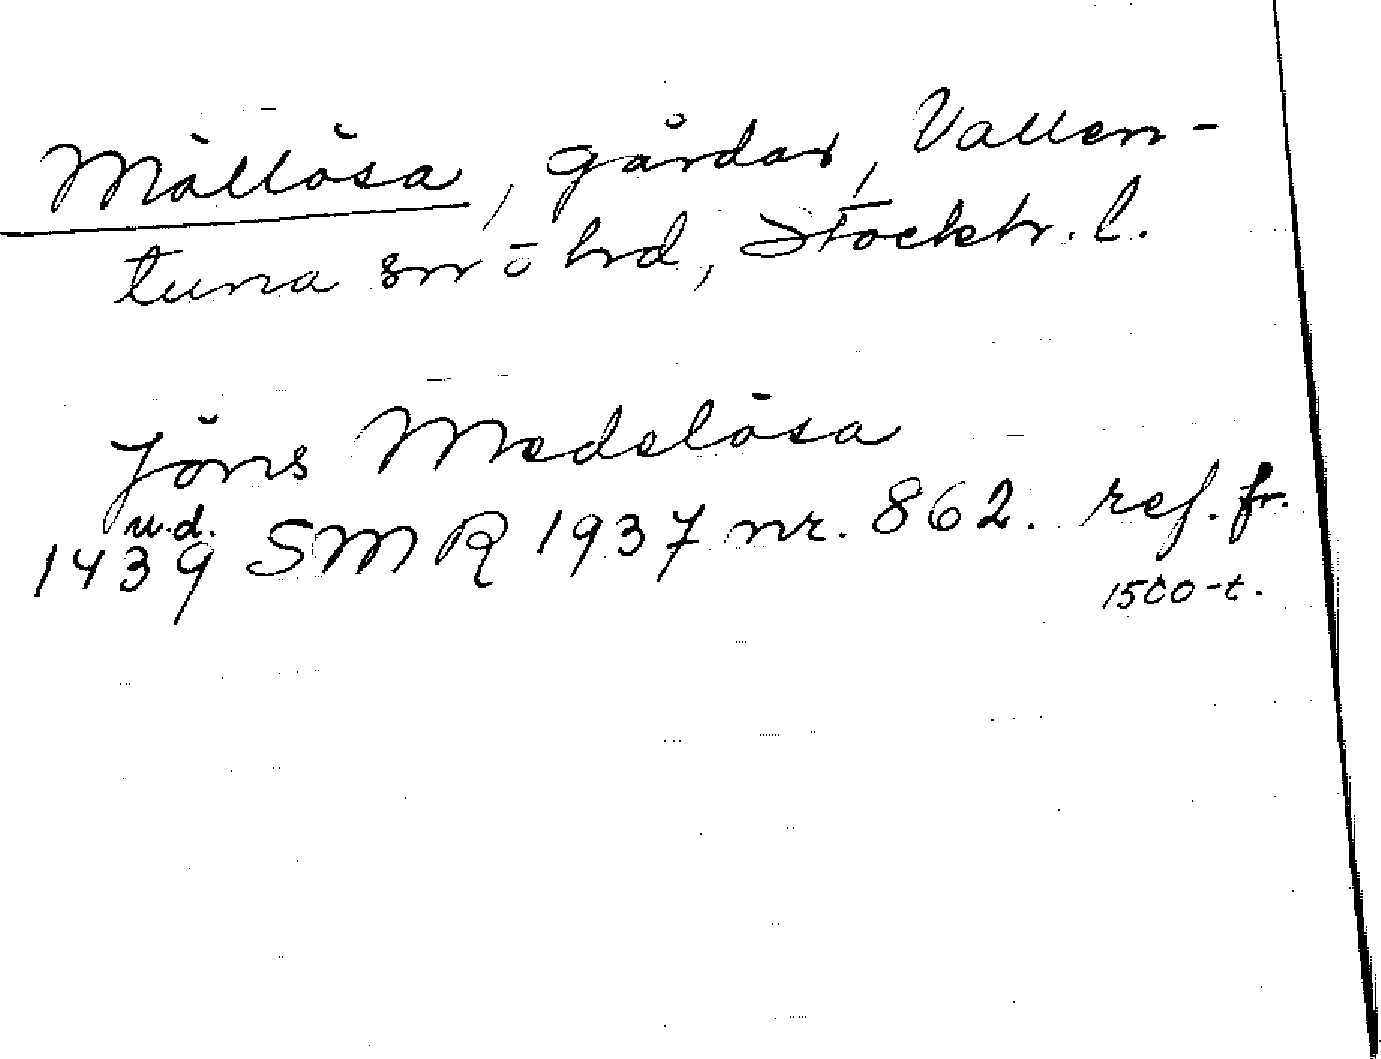 Mällösa, gårdar, Vallen-
tuna sn ö hd, Stockh. l.
Jöns Medelösa
u.d.
1439 SMR 1937 nr. 862. ref. fr.
1500-t.